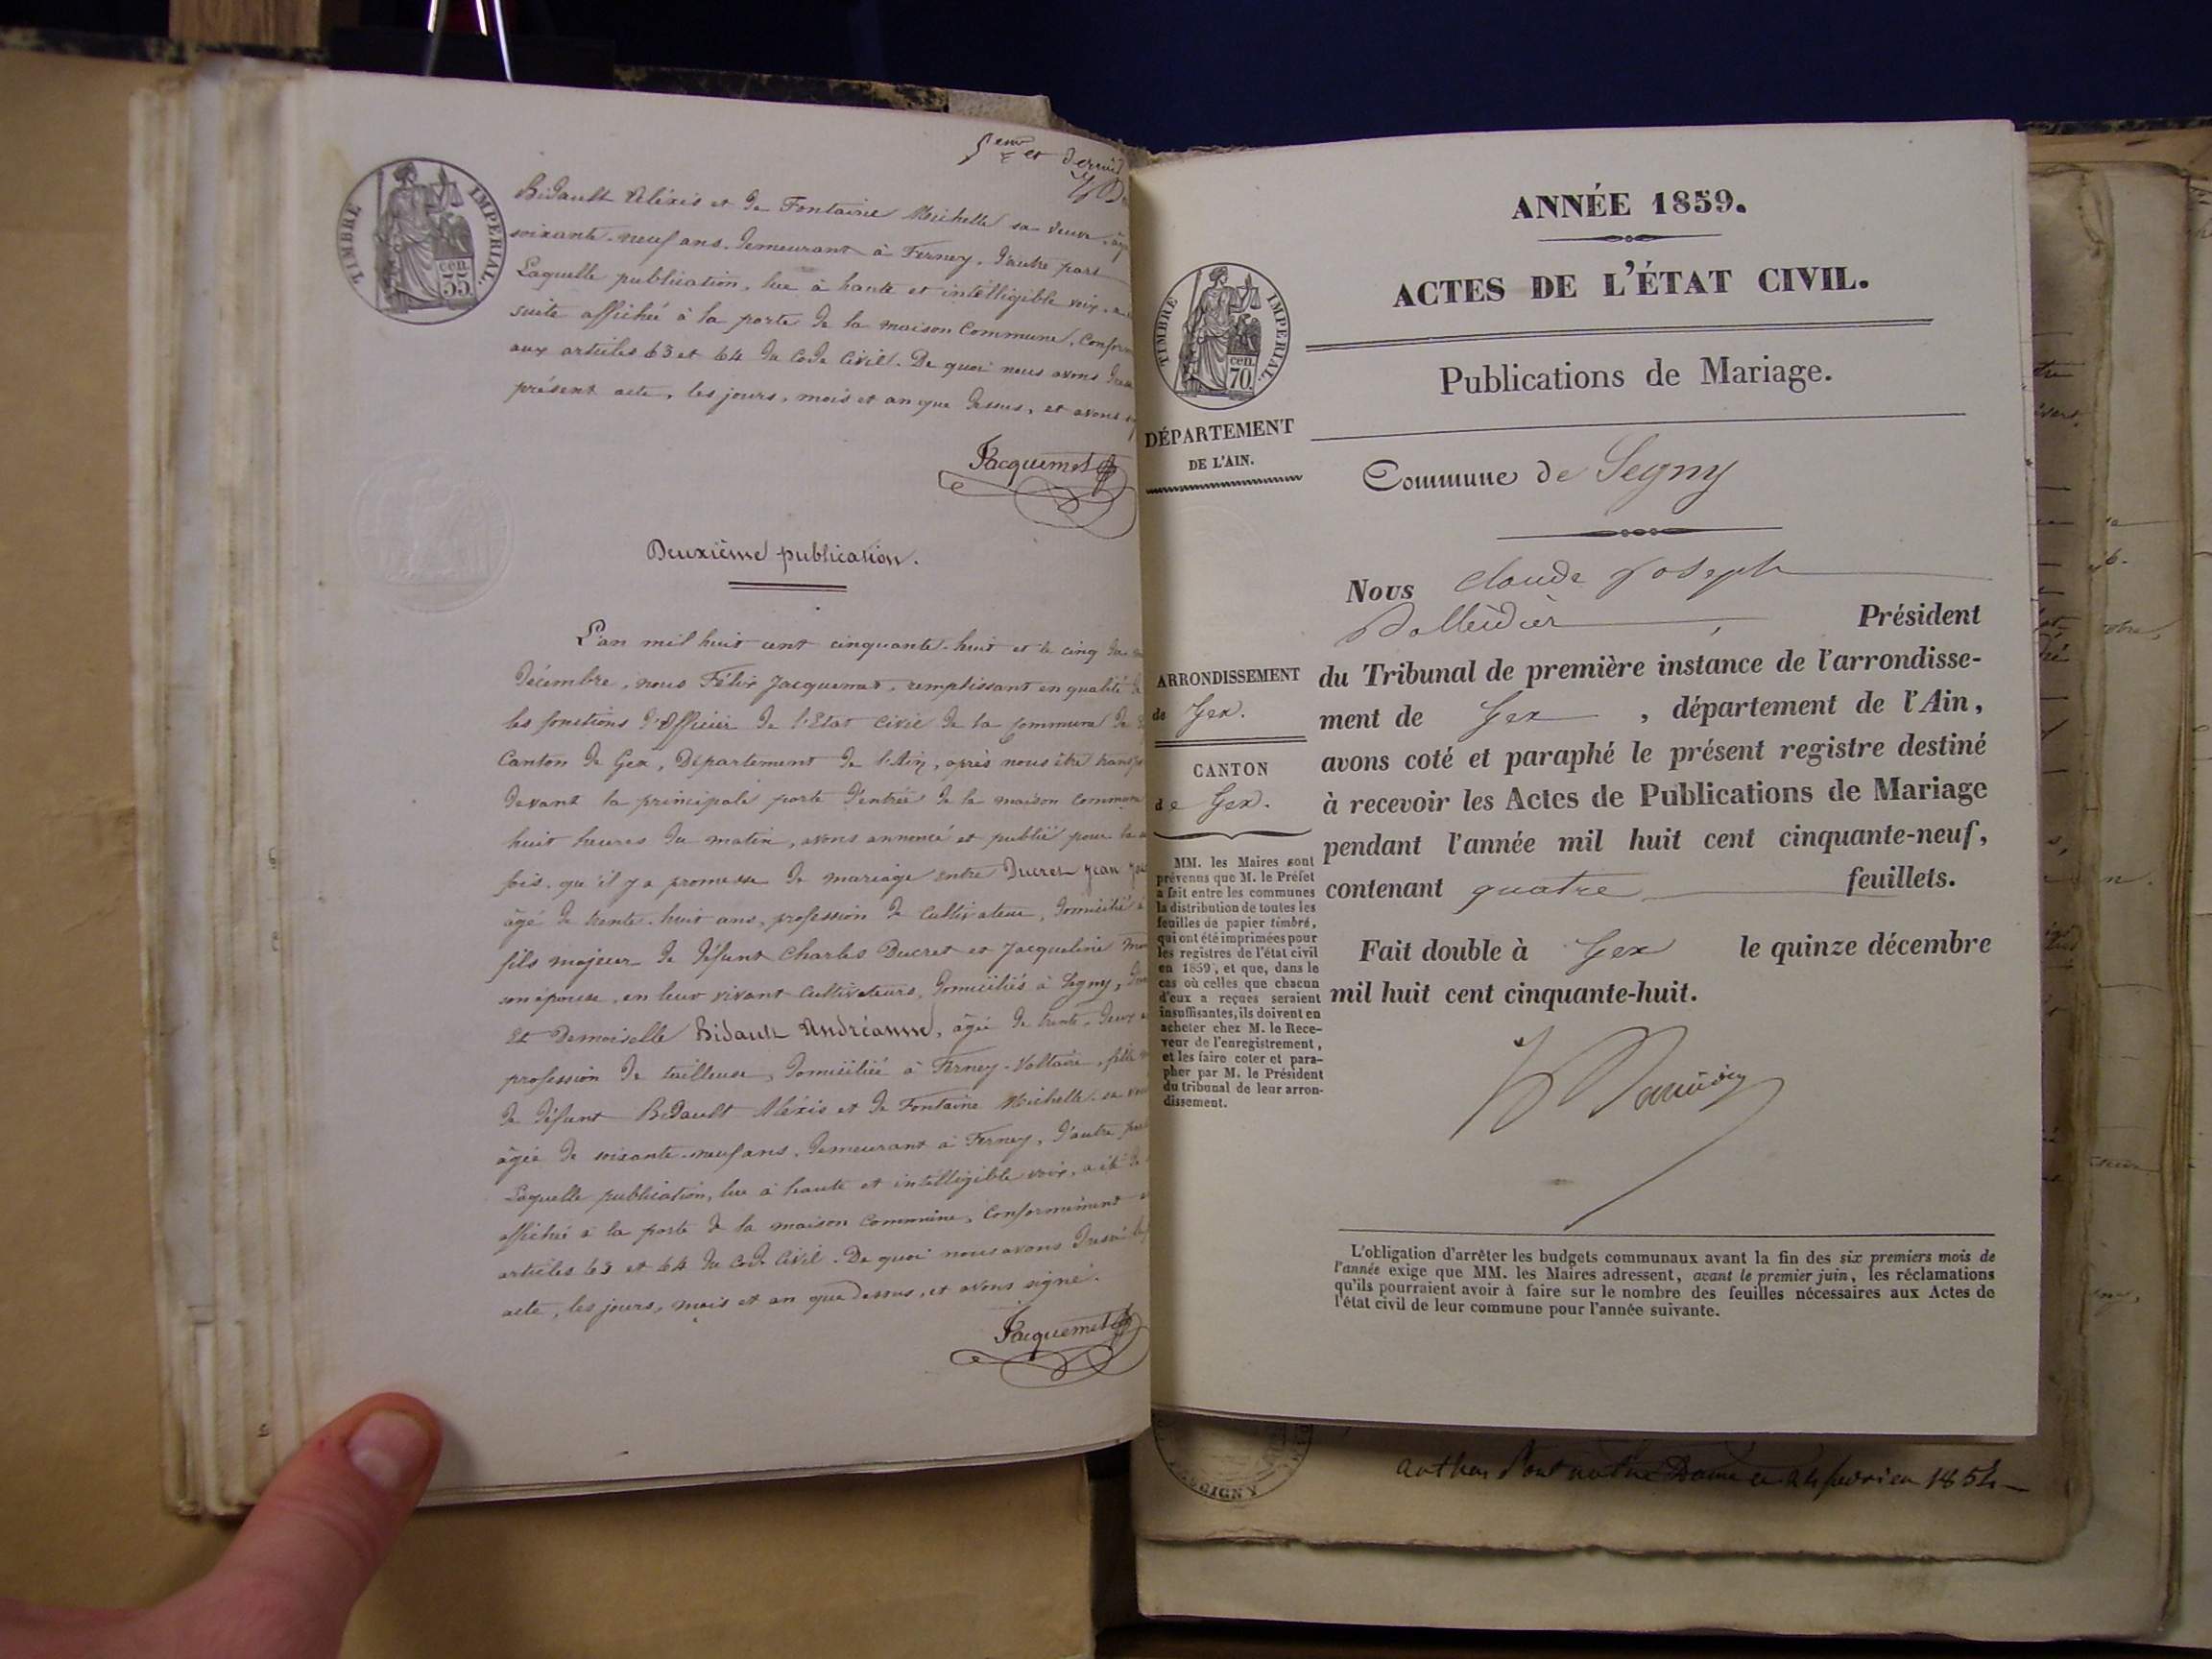 5eme et dernier
TIMBRE IMPERIAL.
cen.
35
Bidault Aléxis et de Fontaine Michelle sa veuve, âg
soixante-neuf ans, demeurant à Ferney, d'autre part
Laquelle publication, lue à haute et intélligible voix, a
suite affiché à la porte de la maison Commune, Conform
aux articles 63 et 64 du Code Civil. De quoi nous avons dressé
présent acte, les jours, mois et an que dessus, et avons
Jacquemet
Deuxième publication.
L'an mil huit cent cinquante-huit et le cinq du
décembre, nous Félix Jacquemet, remplissant en qualité de
les fonctions d'Officier de l'Etat Civil de la Commune de
Canton de Gex, Département de l'Ain, après nous être transp
devant la principale porte d'entrée de la maison commune
huit heures du matin, avons annoncé et publié pour la
fois, qu'il y a promesse de mariage entre Ducret Jean
âgé de trente-huit ans, profession de Cultivateur, domicilié à
fils majeur de défunt Charles Ducret et Jacqueline
son épouse, en leur vivant Cultivateurs, domiciliés à Segny,
Et Demoiselle Bidault Andréanne, âgée de trente-deux
profession de tailleuse, domiciliée à Ferney-Voltaire, fille
de défunt Bidault Aléxis et de Fontaine Michelle sa
âgée de soixante-neuf ans, demeurant à Ferney, d'autre part
Laquelle publication, lue à haute et intélligible voix, a été de
affiché à la porte de la maison Commune, Conformément
articles 63 et 64 du Code Civil. De quoi nous avons dressé le
acte, les jours, mois et an que dessus, et avons signé.
Jacquemet
ANNÉE 1859.
ACTES DE L'ÉTAT CIVIL.
Publications de Mariage.
TIMBRE IMPERIAL.
cen.
70.
DÉPARTEMENT
DE L'AIN.
Commune de Segny
Nous Claude Joseph
Président
du Tribunal de première instance de l'arrondisse-
ment de Gex, département de l'Ain,
avons coté et paraphé le présent registre destiné
à recevoir les Actes de Publications de Mariage
pendant l'année mil huit cent cinquante-neuf,
contenant quatre feuillets.
Fait double à Gex le quinze décembre
mil huit cent cinquante-huit.
ARRONDISSEMENT
de Gex.
CANTON
de Gex.
MM. les Maires sont
prévenus que M. le Préfet
a fait entre les communes
la distribution de toutes les
feuilles de papier timbré,
qui ont été imprimées pour
les registres de l'état civil
en 1859, et que, dans le
cas où celles que chacun
d'eux a reçues seraient
insuffisantes, ils doivent en
acheter chez M. le Rece-
veur de l'enregistrement,
et les faire coter et para-
pher par M. le Président
du tribunal de leur arron-
dissement.
L'obligation d'arrêter les budgets communaux avant la fin des six premiers mois de
l'année exige que MM. les Maires adressent, avant le premier juin, les réclamations
qu'ils pourraient avoir à faire sur le nombre des feuilles nécessaires aux Actes de
l'état civil de leur commune pour l'année suivante.
Dame 1854